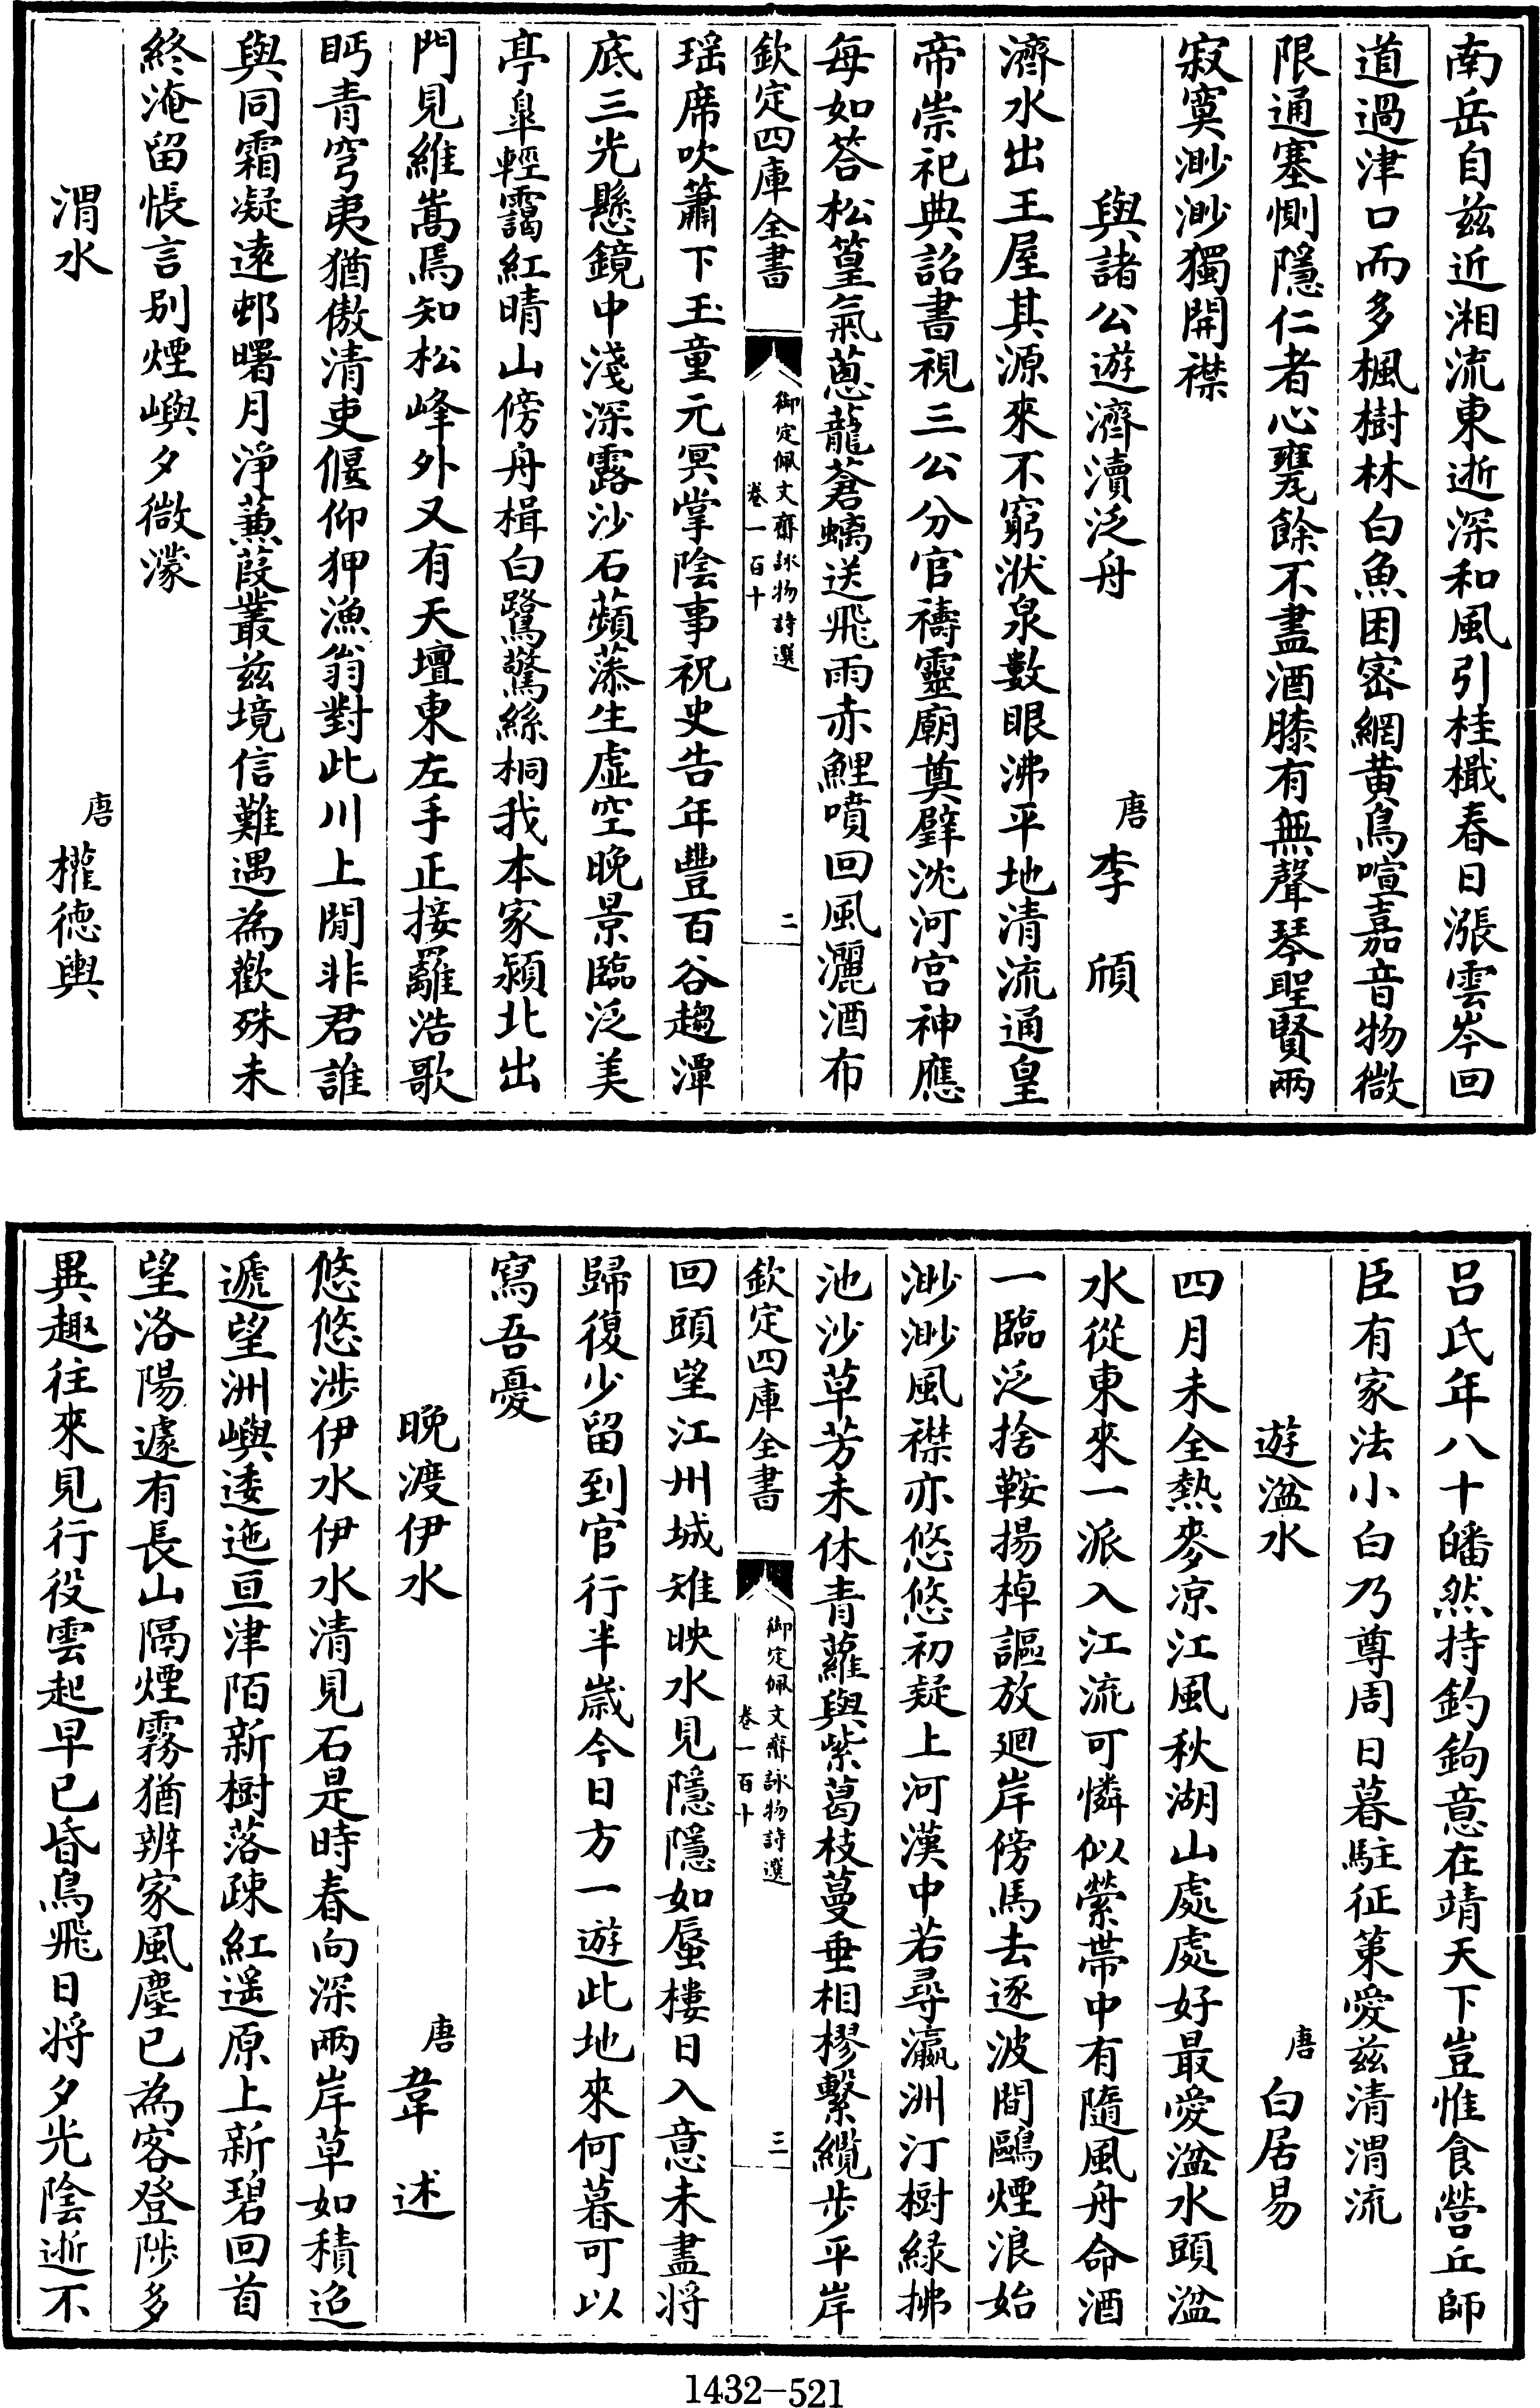 南岳自兹近湘流東逝深和風引桂檝春日漲雲岑回
道過津口而多楓樹林白魚困密網黃鳥喧嘉音物微
限通塞惻隱仁者心甕餘不盡酒膝有無聲琴聖賢兩
寂寞渺渺獨開襟
與諸公遊濟瀆泛舟 唐 李頎
濟水出王屋其源來不窮洑泉數眼沸平地清流通皇
帝崇祀典詔書視三公分官禱靈廟奠璧沈河宮神應
每如答松篁氣蔥蘢蒼螭送飛雨赤鯉噴回風灑酒布
欽定四庫全書 御定佩文齋詠物詩選 卷一百十 二
瑶席吹簫下玉童元冥掌陰事祝史告年豐百谷趨潭
底三光懸鏡中淺深露沙石蘋藻生虛空晚景臨泛美
亭臯輕靄紅晴山傍舟楫白鷺驚絲桐我本家潁北出
門見維嵩焉知松峰外又有天壇東左手正接䍦浩歌
眄青穹夷猶傲清吏偃仰狎漁翁對此川上閒非君誰
與同霜凝遠邨曙月淨蒹葭叢兹境信難遇為歡殊未
終淹留悵言别煙嶼夕微濛
渭水 唐 權德輿
呂氏年八十皤然持釣鉤意在靖天下豈惟食營丘師
臣有家法小白乃尊周日暮駐征策愛兹清渭流
遊湓水 唐 白居易
四月未全熱麥凉江風秋湖山處處好最愛湓水頭湓
水從東來一派入江流可憐似縈帶中有隨風舟命酒
一臨泛捨鞍揚棹謳放廻岸傍馬去逐波間鷗煙浪始
渺渺風襟亦悠悠初疑上河漢中若尋瀛洲汀樹緑拂
池沙草芳未休青蘿與紫葛枝蔓垂相樛繫纜步平岸
欽定四庫全書 御定佩文齋詠物詩選 卷一百十 三
回頭望江州城雉映水見隱隱如蜃樓日入意未盡将
歸復少留到官行半嵗今日方一遊此地來何暮可以
寫吾憂
晚渡伊水 唐 韋述
悠悠涉伊水伊水清見石是時春向深兩岸草如積迢
遞望洲嶼逶迤亘津陌新樹落疎紅遥原上新碧回首
望洛陽遽有長山隔煙霧猶辨家風塵已為客登陟多
異趣往來見行役雲起早已昏鳥飛日将夕光陰逝不
1432-521